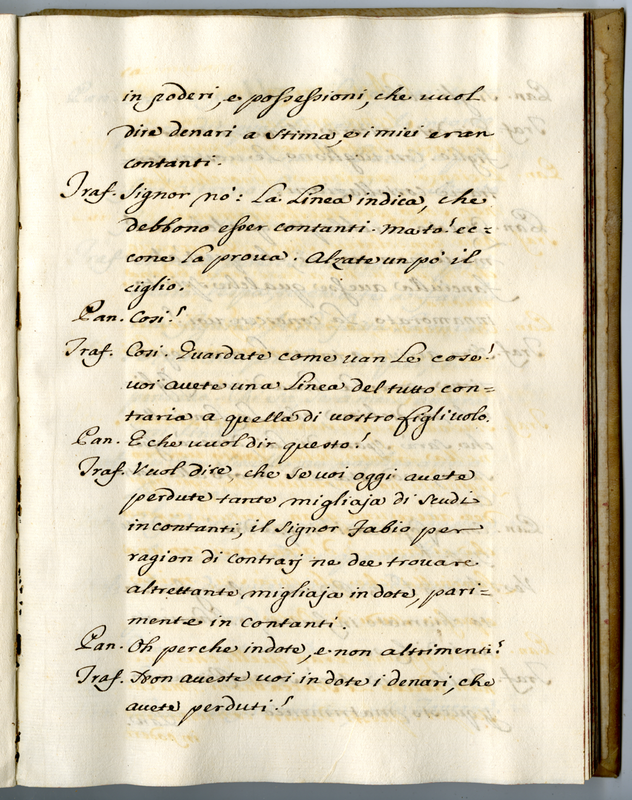 in poderi, e possessioni, che vuol
dire denari a stima, e i miei eran
contanti.
Traf. Signor nò: La Linea indica, che
debbono esser contanti. ma to! ec=
cone la prova. Alzate un pò il
ciglio.
Pan. Cosi!
Traf. Cosi. Guardate come van le cose!
voi avete una Linea del tutto con=
traria a quella di vostro figlivolo.
Pan. E che vuol dir questo!
Traf. Vuol dire, che se voi oggi avete
perdute tante migliaja di scudi
in contanti, il Signor Fabio per
ragion di contrarj ne dee trovare
altrettante migliaja in dote, pari=
mente in contanti.
Pan. Oh perche in dote, e non altrimenti?
Traf. Non aveste voi in dote i denari, che
avete perduti!